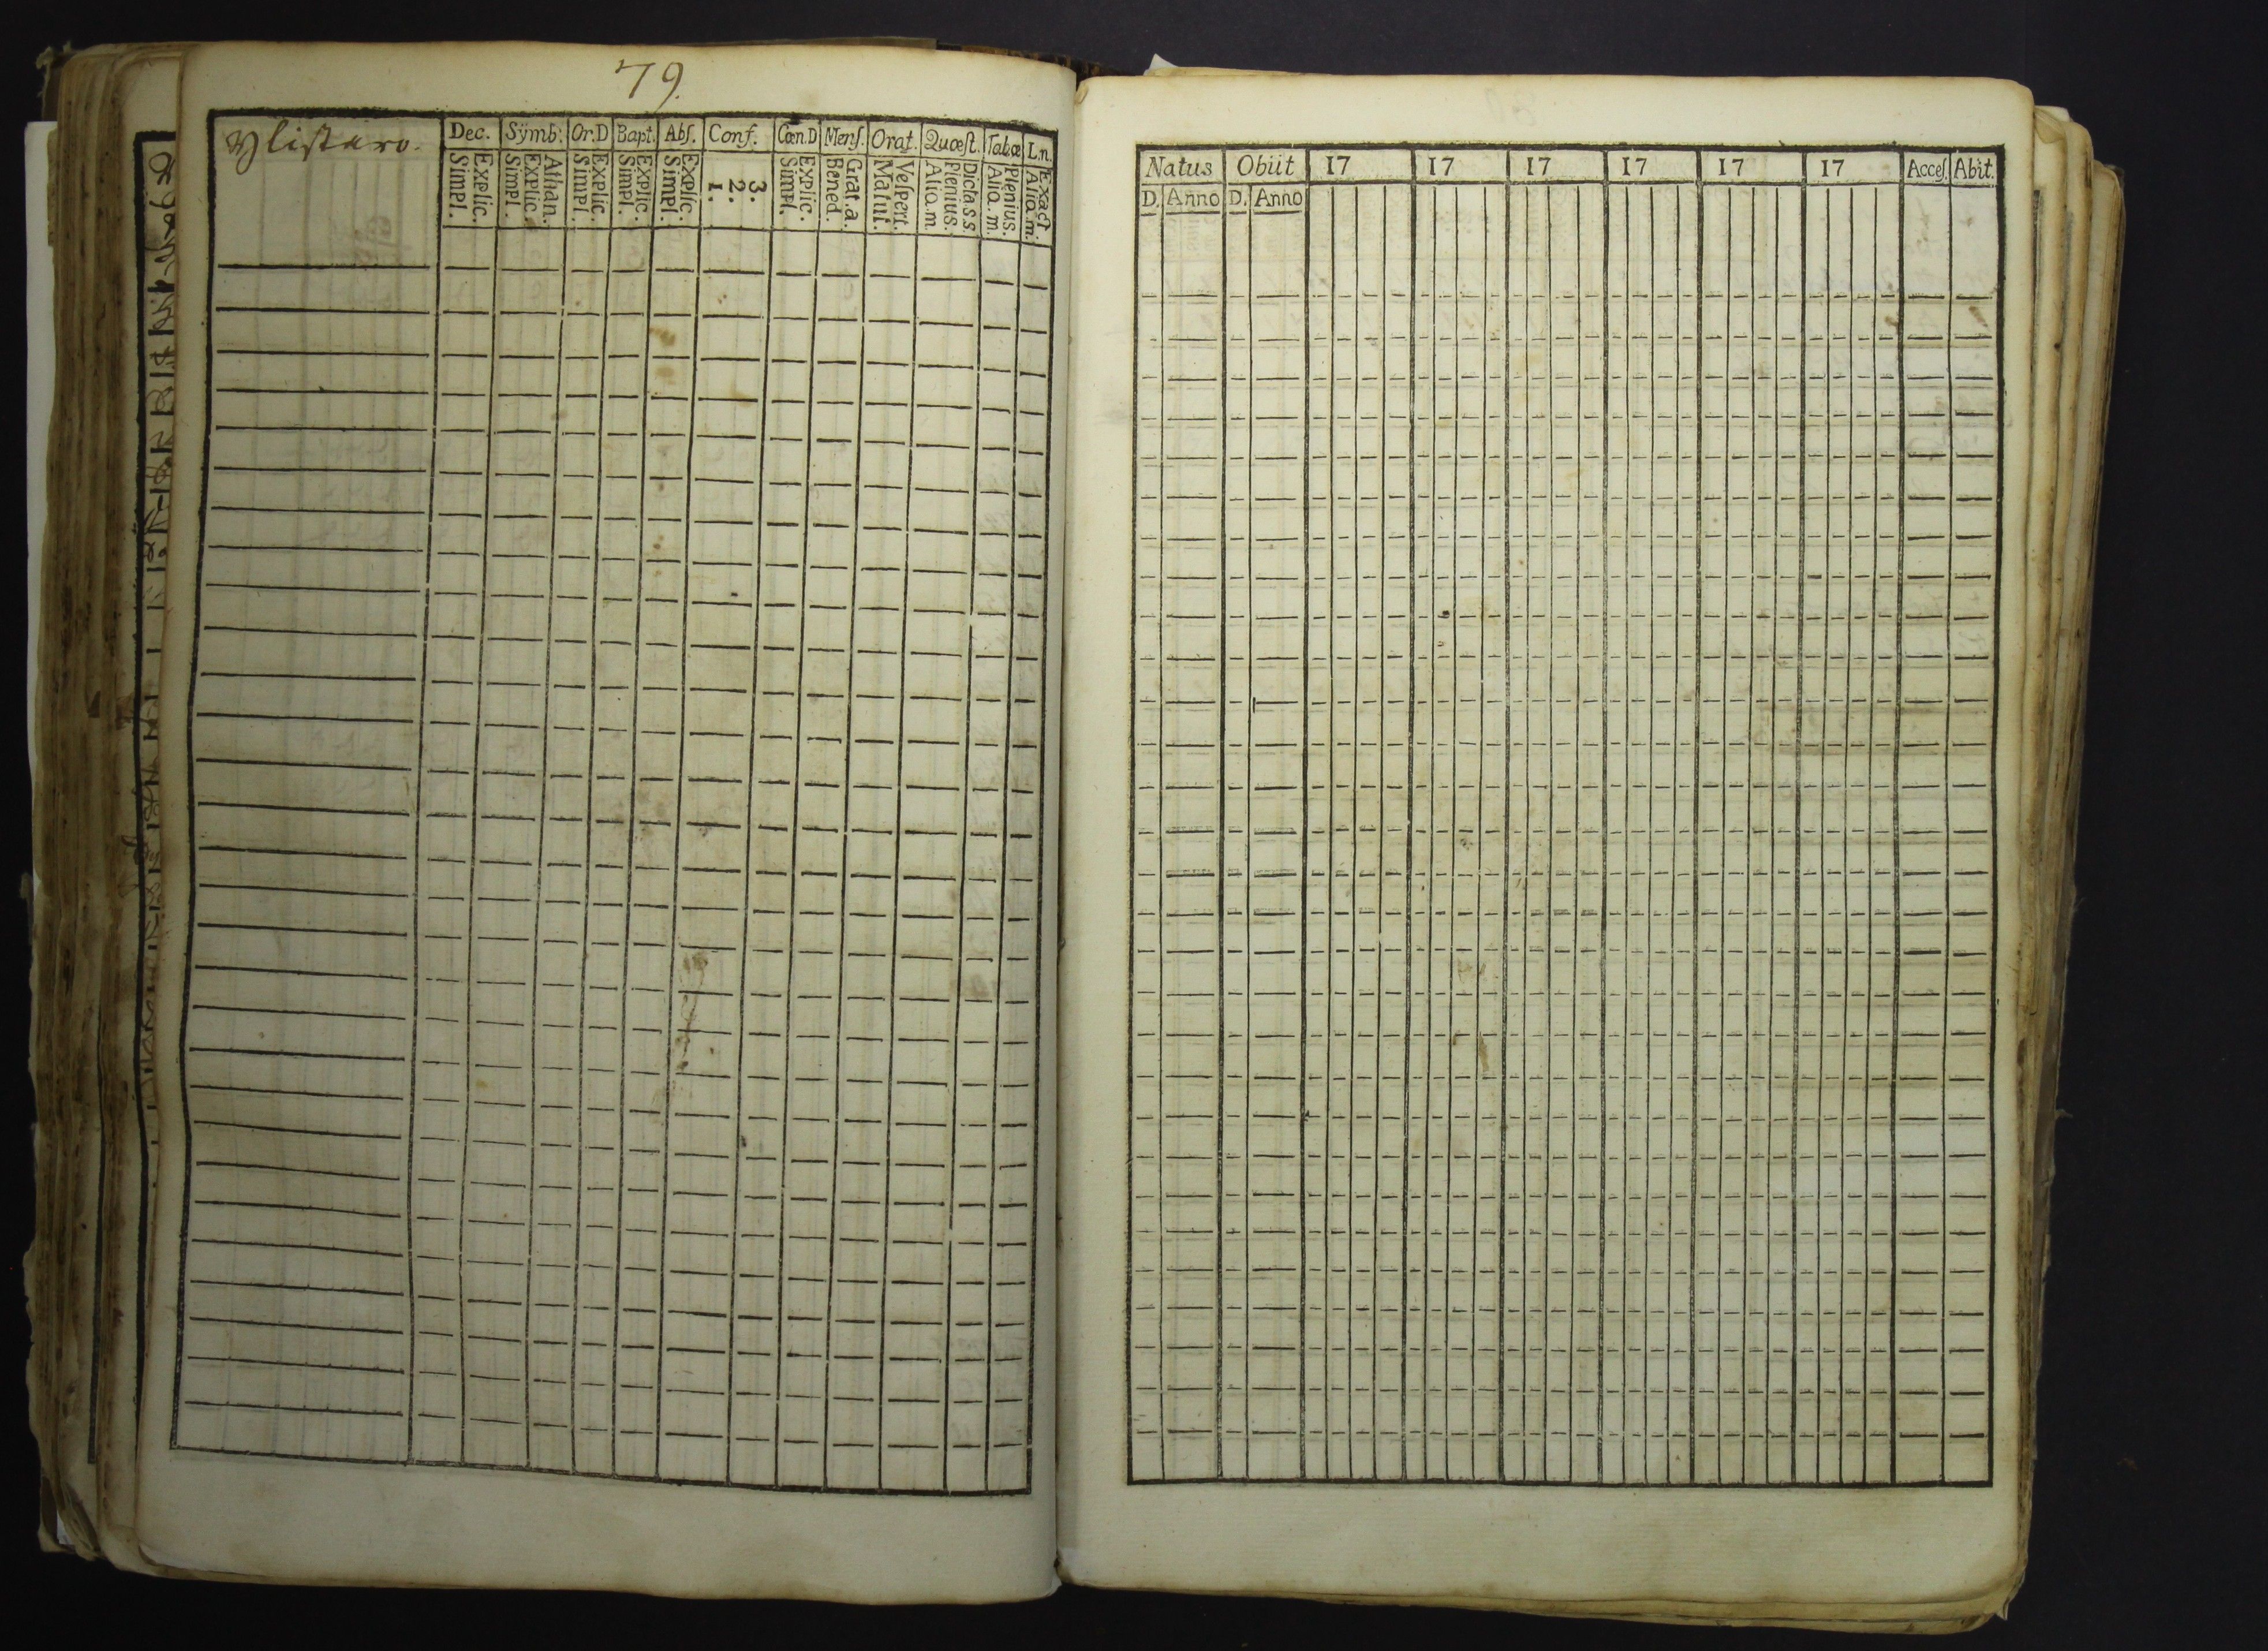 79.
Ylistaro.
Dec. Symb: Or.D Bapt. Abſ. Conf. Cœn.D Menſ. Orat. Quæſt. Tabæ L.n.
Explic. Simpl. Athan. Explic. Simpl. Explic. Simpl. Explic. Simpl. Explic. Simpl. 3. 2. 1. Explic. Simpl. Grat.a. Bened. Veſpert. Matut. Dicta s.s Plenius. Aliq.m. Plenius. Aliq.m. Exact. Aliq.m.
Natus Obiit 17 17 17 17 17 17 Acceſ. Abit.
D. Anno D. Anno